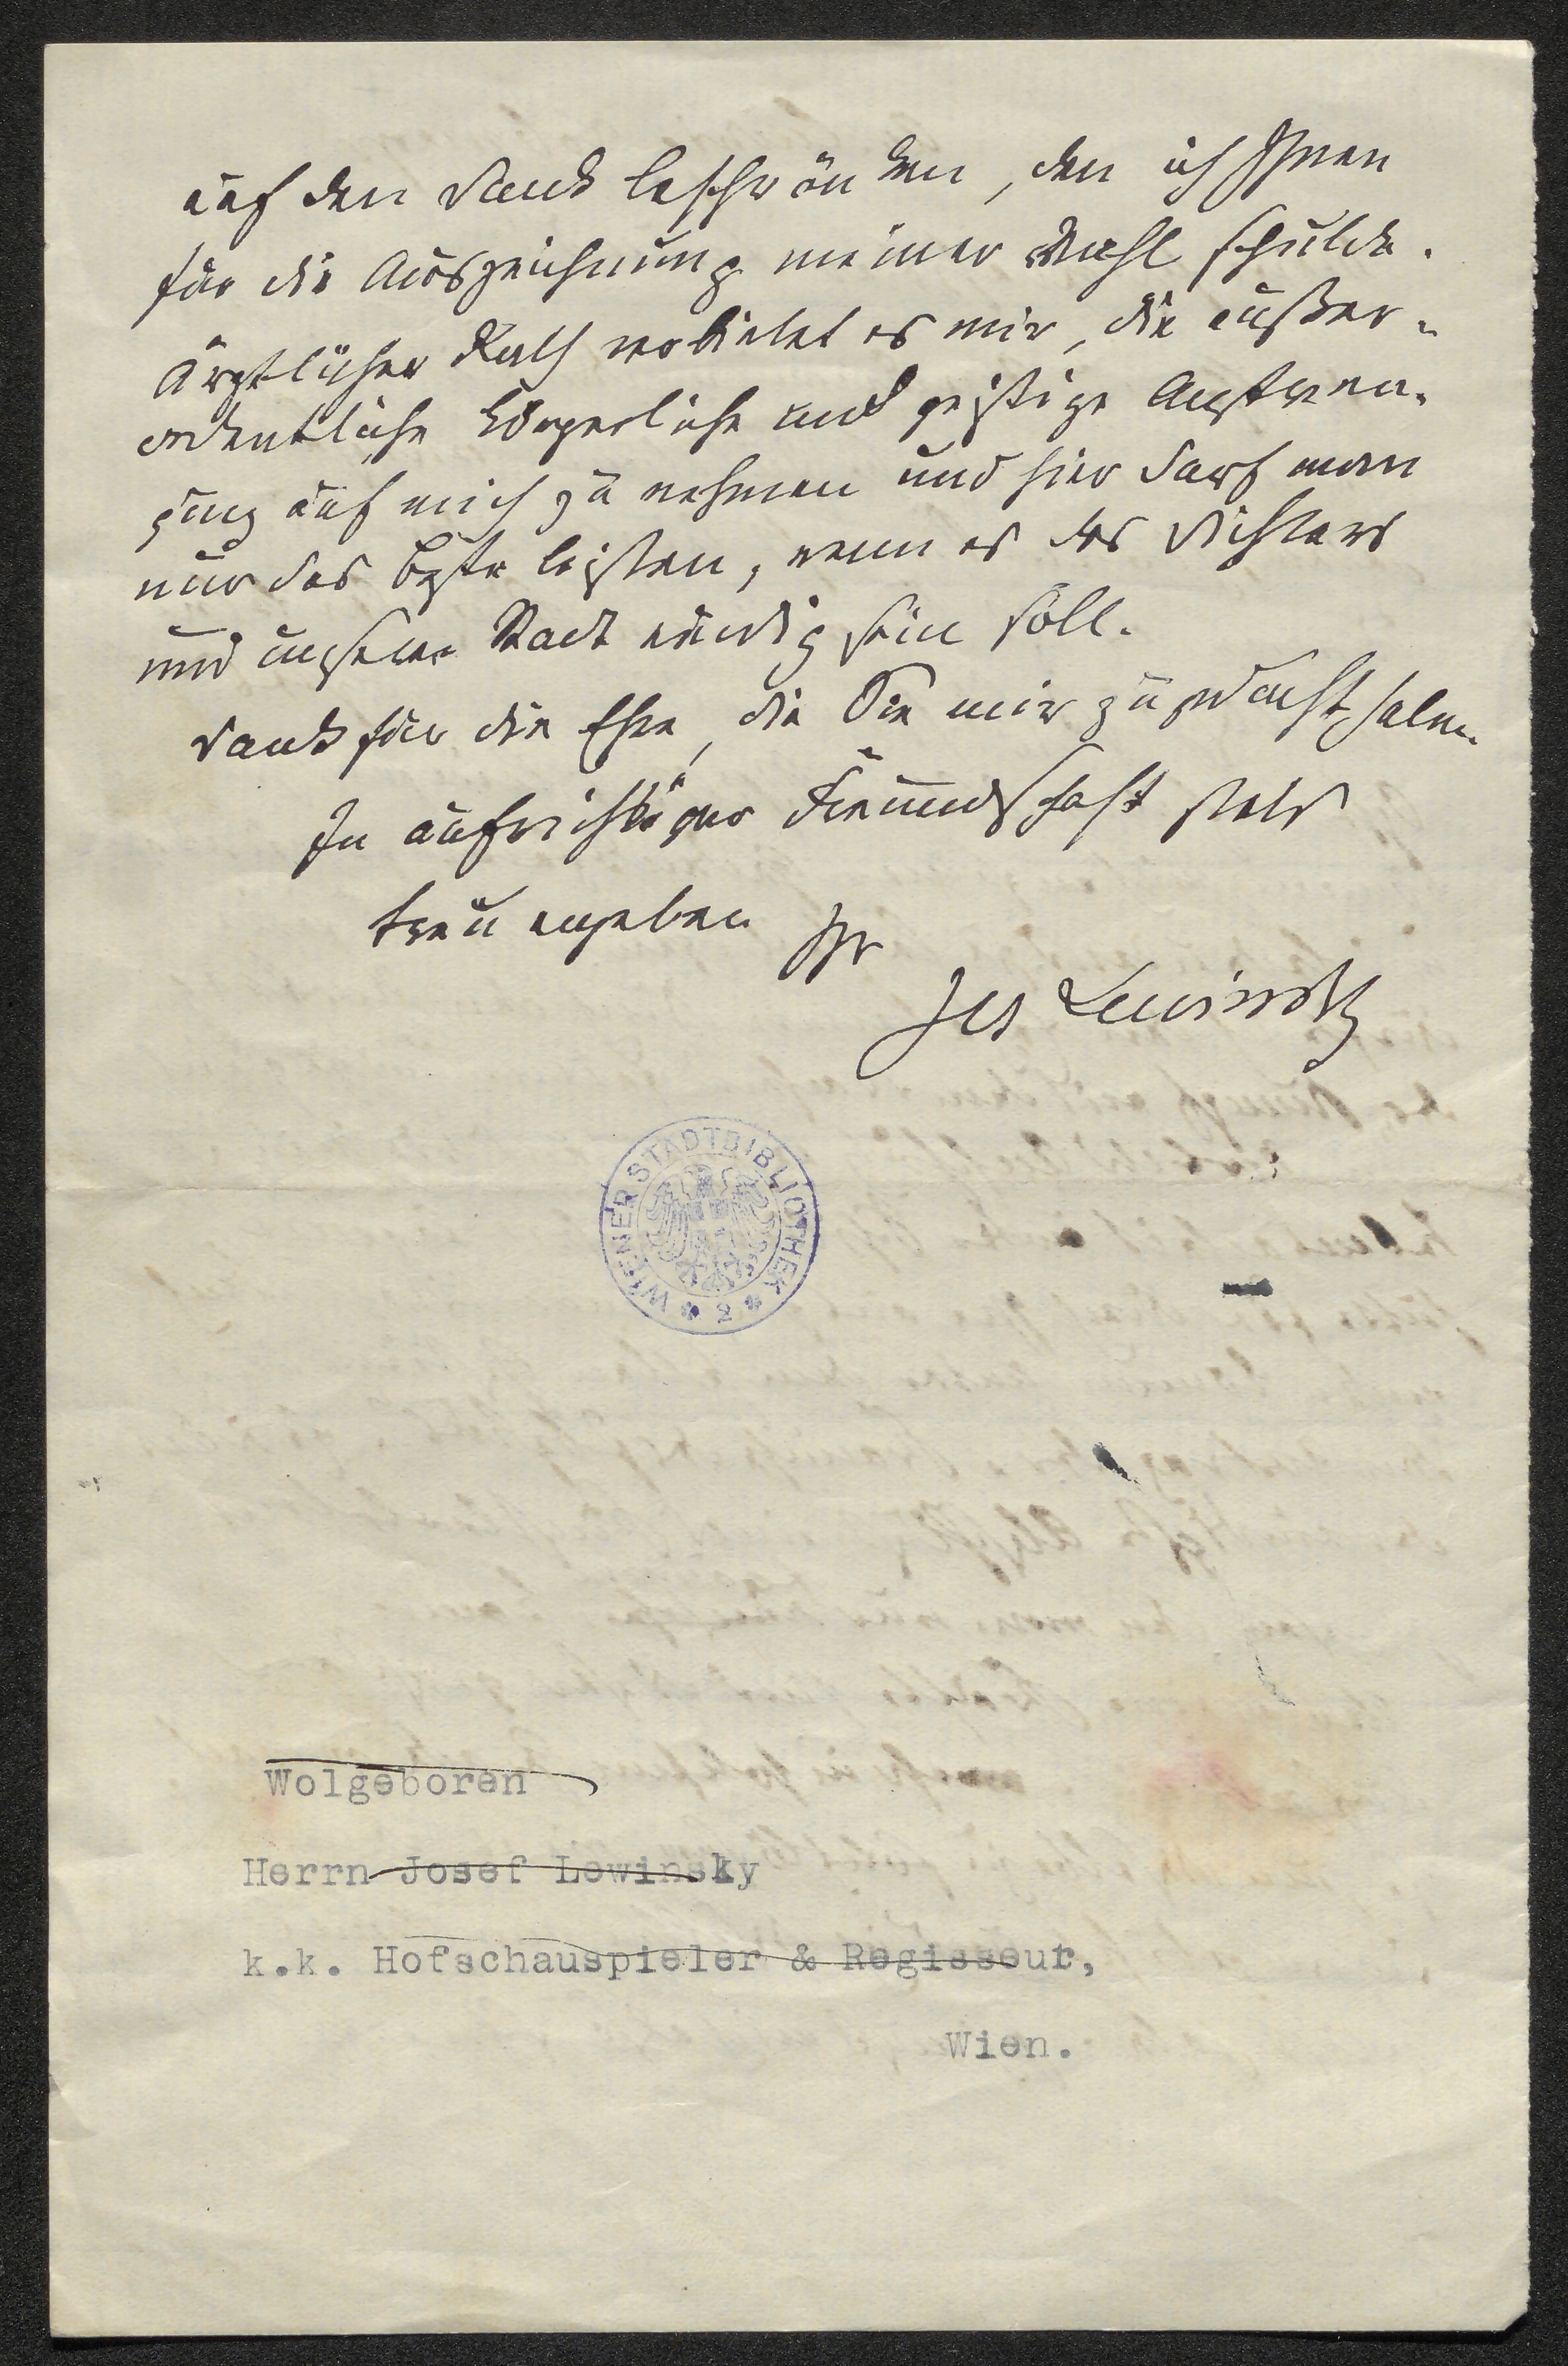 auf den Dank beschränken, den ich Ihnen
für die Auszeichnung meiner Wahl schulde.
Ärztlicher Rath verbietet es mir, die außer-
ordentliche körperliche und geistige Anstren-
gung auf mich zu nehmen und hier darf man
nur das Beste leisten, wenn es des Dichters
und unserer Stadt würdig sein soll.
Dank für die Ehre, die Sie mir zugedacht haben.
In aufrichtiger Freundschaft stets
treu ergeben Ihr
Jos Lewinsky
WIENER STADTBIBLIOTHEK * 3 *
Wolgeboren
Herrn Josef Lewinsky
k.k. Hofschauspieler & Regisseur,
Wien.